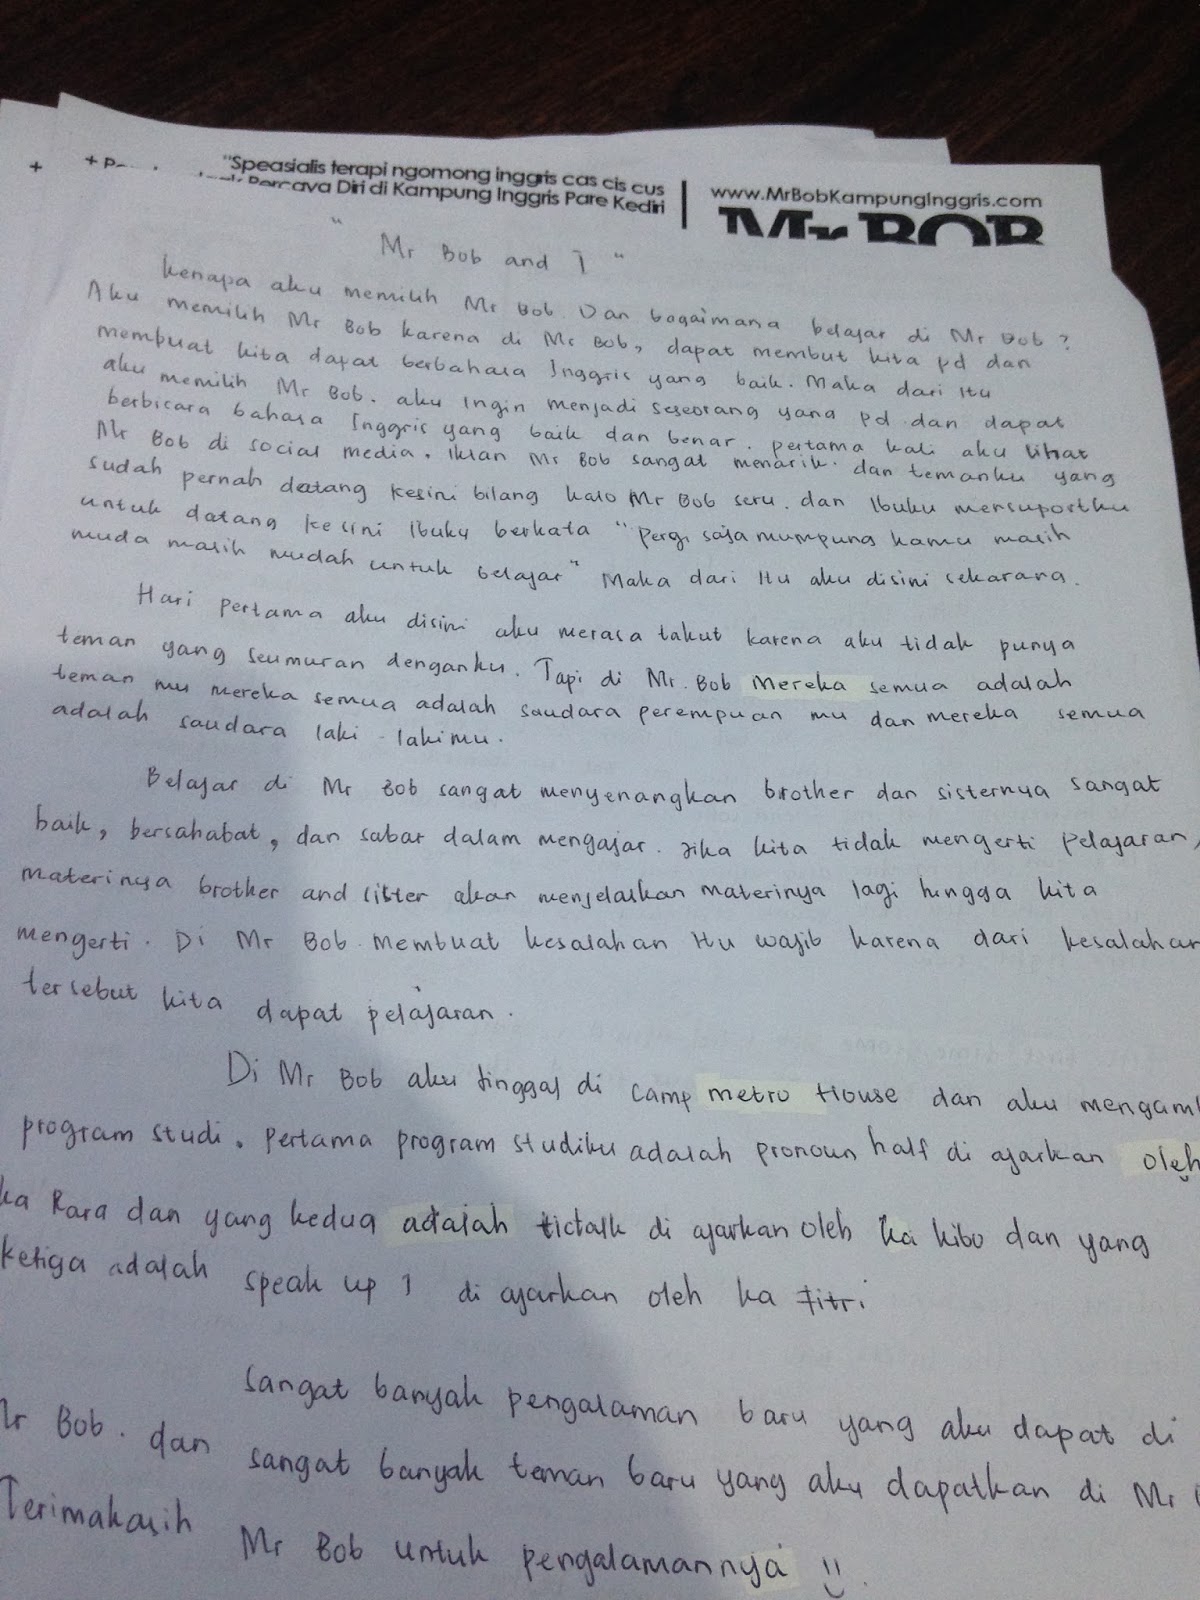 + + P
"Speasialis terapi ngomong inggris cas cis cus
Percaya Diri di Kampung Inggris Pare Kediri
www.MrBobKampungInggris.com
Mr BOB
" Mr Bob and I "
kenapa aku memilih Mr Bob. Dan bagaimana belajar di Mr Bob ?
Aku memilih Mr Bob karena di Mr Bob, dapat membut kita pd dan
membuat kita dapat berbahasa Inggris yang baik. Maka dari Itu
aku memilih Mr Bob. aku Ingin menjadi seseorang yang pd dan dapat
berbicara bahasa Inggris yang baik dan benar. pertama kali aku lihat
Mr Bob di social media. Iklan Mr Bob sangat menarik. dan temanku yang
sudah pernah datang kesini bilang kalo Mr Bob seru. dan Ibuku mensuportku
untuk datang kesini Ibuku berkata "Pergi saja mumpung kamu masih
muda masih mudah untuk belajar" Maka dari Itu aku disini sekarang.
Hari pertama aku disini aku merasa takut karena aku tidak punya
teman yang seumuran denganku. Tapi di Mr. Bob Mereka semua adalah
teman mu mereka semua adalah saudara perempuan mu dan mereka semua
adalah saudara laki - lakimu.
Belajar di Mr Bob sangat menyenangkan brother dan sisternya sangat
baik, bersahabat, dan sabar dalam mengajar. Jika kita tidak mengerti Pelajaran,
materinya brother and sister akan menjelaskan materinya lagi hingga kita
mengerti. Di Mr Bob. membuat kesalahan Itu wajib karena dari kesalahan
tersebut kita dapat pelajaran.
Di Mr Bob aku tinggal di camp metro House dan aku mengamb
program studi. Pertama program studiku adalah pronoun half di ajarkan oleh
ka Rara dan yang kedua adalah tictalk di ajarkan oleh ka kibo dan yang
ketiga adalah speak up 1 di ajarkan oleh ka Fitri
Sangat banyak pengalaman baru yang aku dapat di
Mr Bob. dan sangat banyak teman baru yang aku dapatkan di Mr
Terimakasih Mr Bob untuk pengalamannya